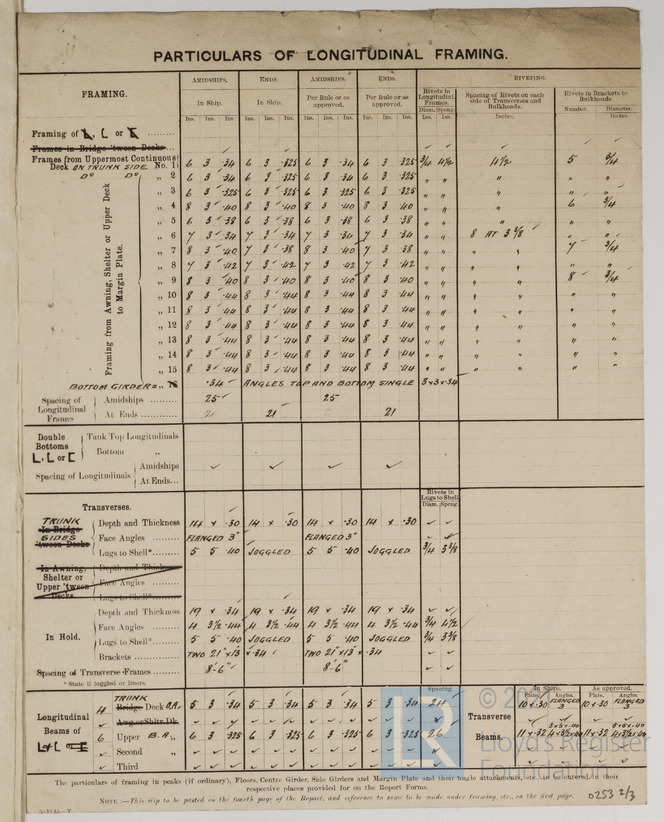 PARTICULARS OF LONGITUDINAL FRAMING.
FRAMING. AMIDSHIPS. ENDS. AMIDSHIPS. ENDS. RIVETING.
In Ship. In Ship. Per Rule or as approved. Per Rule or as approved. Rivets in Longitudinal Frames. Spacing of Rivets on each side of Transverses and Bulkheads. Rivets in Brackets to Bulkheads.
Diam. Spcng. Number. Diameter.
Ins. Ins. Ins. Ins. Ins. Ins. Ins. Ins. Ins. Ins. Ins. Ins. Ins. Ins. Inches. Inches.
Framing of L, L or
Frames in Bridge 'tween Decks
Frames from Uppermost Continuous
Deck ON TRUNK SIDE No. 1 6 3 .34 6 3 .325 6 3 .34 6 3 .325 3/4 4 1/2 4 1/2 5
Do Do „ 2 6 3 .34 6 3 .325 6 3 .34 6 3 .325 " " " "
Framing from Awning, Shelter or Upper Deck to Margin Plate.
„ 3 6 3 .325 6 3 .325 6 3 .325 6 3 .325 " " "
„ 4 8 3 .40 8 3 .40 8 3 .40 8 3 .40 " " " 6 3/4
„ 5 6 3 .38 6 3 .38 6 3 .38 6 3 .38 " " "
„ 6 7 3 .34 7 3 .34 7 3 .34 7 3 .34 " " 8 AT 3 3/8
„ 7 8 3 .40 7 3 .38 8 3 .40 7 3 .38 " " " " 7 3/4
„ 8 7 3 .42 7 3 .42 7 3 .42 7 3 .42 " " " "
„ 9 8 3 .40 8 3 .40 8 3 .40 8 3 .40 " " " " 8 3/4
„ 10 8 3 .44 8 3 .44 8 3 .44 8 3 .44 " " " " " "
„ 11 8 3 .44 8 3 .44 8 3 .44 8 3 .44 " " " " " "
„ 12 8 3 .44 8 3 .44 8 3 .44 8 3 .44 " " " " " "
„ 13 8 3 .44 8 3 .44 8 3 .44 8 3 .44 " " " " " "
„ 14 8 3 .44 8 3 .44 8 3 .44 8 3 .44 " " " " " "
„ 15 8 3 .44 8 3 .44 8 3 .44 8 3 .44 " " " " " "
BOTTOM GIRDERS „ 16 .34 ANGLES TOP AND BOTTOM SINGLE 3 x 3 x .34
Spacing of Longitudinal Frames
Amidships 25 25
At Ends 21 21 21
Double Bottoms L, L or [
Tank Top Longitudinals
Bottom „
Spacing of Longitudinals
Amidships ✓ ✓ ✓ ✓
At Ends...
Rivets in Lugs to Shell.
Diam. Spcng.
Transverses.
TRUNK SIDES
In Bridge 'tween Decks
Depth and Thickness 14 x .30 14 x .30 14 x .30 14 x .30 ✓ ✓
Face Angles FLANGED 3" FLANGED 3" ✓
Lugs to Shell* 5 5 .40 JOGGLED 5 5 .40 JOGGLED 3/4 3 3/8
In Awning, Shelter or Upper 'tween Decks
Depth and Thickness
Face Angles
Lugs to Shell*
In Hold.
Depth and Thickness 19 x .34 19 x .34 19 x .34 19 x .34 ✓ ✓
Face Angles 4 3 1/2 .44 4 3 1/2 .44 4 3 1/2 .44 4 3 1/2 .44 3/4 4 1/2
Lugs to Shell* 5 5 .40 JOGGLED 5 5 .40 JOGGLED 3/4 3 3/8
Brackets TWO 21" x 13 x .34 TWO 21" x 13" x .34 ✓ ✓
Spacing of Transverse Frames 8'-6" 8'-6" ✓ ✓
* State if joggled or liners.
Spacing. In Ship. As approved.
Plate. Angles. Plate. Angles.
Longitudinal Beams of L or [
TRUNK
4 Bridge Deck B.A. 5 3 .34 5 3 .34 5 3 .34 5 3 .34 24 10 x .30 FLANGED 3 10 x .30 FLANGED 3
Awg. or Shltr. Dk. ✓ ✓ ✓ ✓
6 Upper B.A. „ 6 3 .325 6 3 .325 6 3 .325 6 3 .325 26 11 x .32 11 x .32
Second „ ✓ ✓ ✓ ✓
Third „ ✓ ✓ ✓ ✓
Transverse Beams.
The particulars of framing in peaks (if ordinary), Floors, Centre Girder, Side Girders and Margin Plate and their angle attachments, etc., to be entered in their
respective places provided for on the Report Forms.
NOTE:—This slip to be pasted on the fourth page of the Report, and reference to same to be made under framing, etc., on the first page.
0253 2/3
LR
Lloyd's Register
Foundation